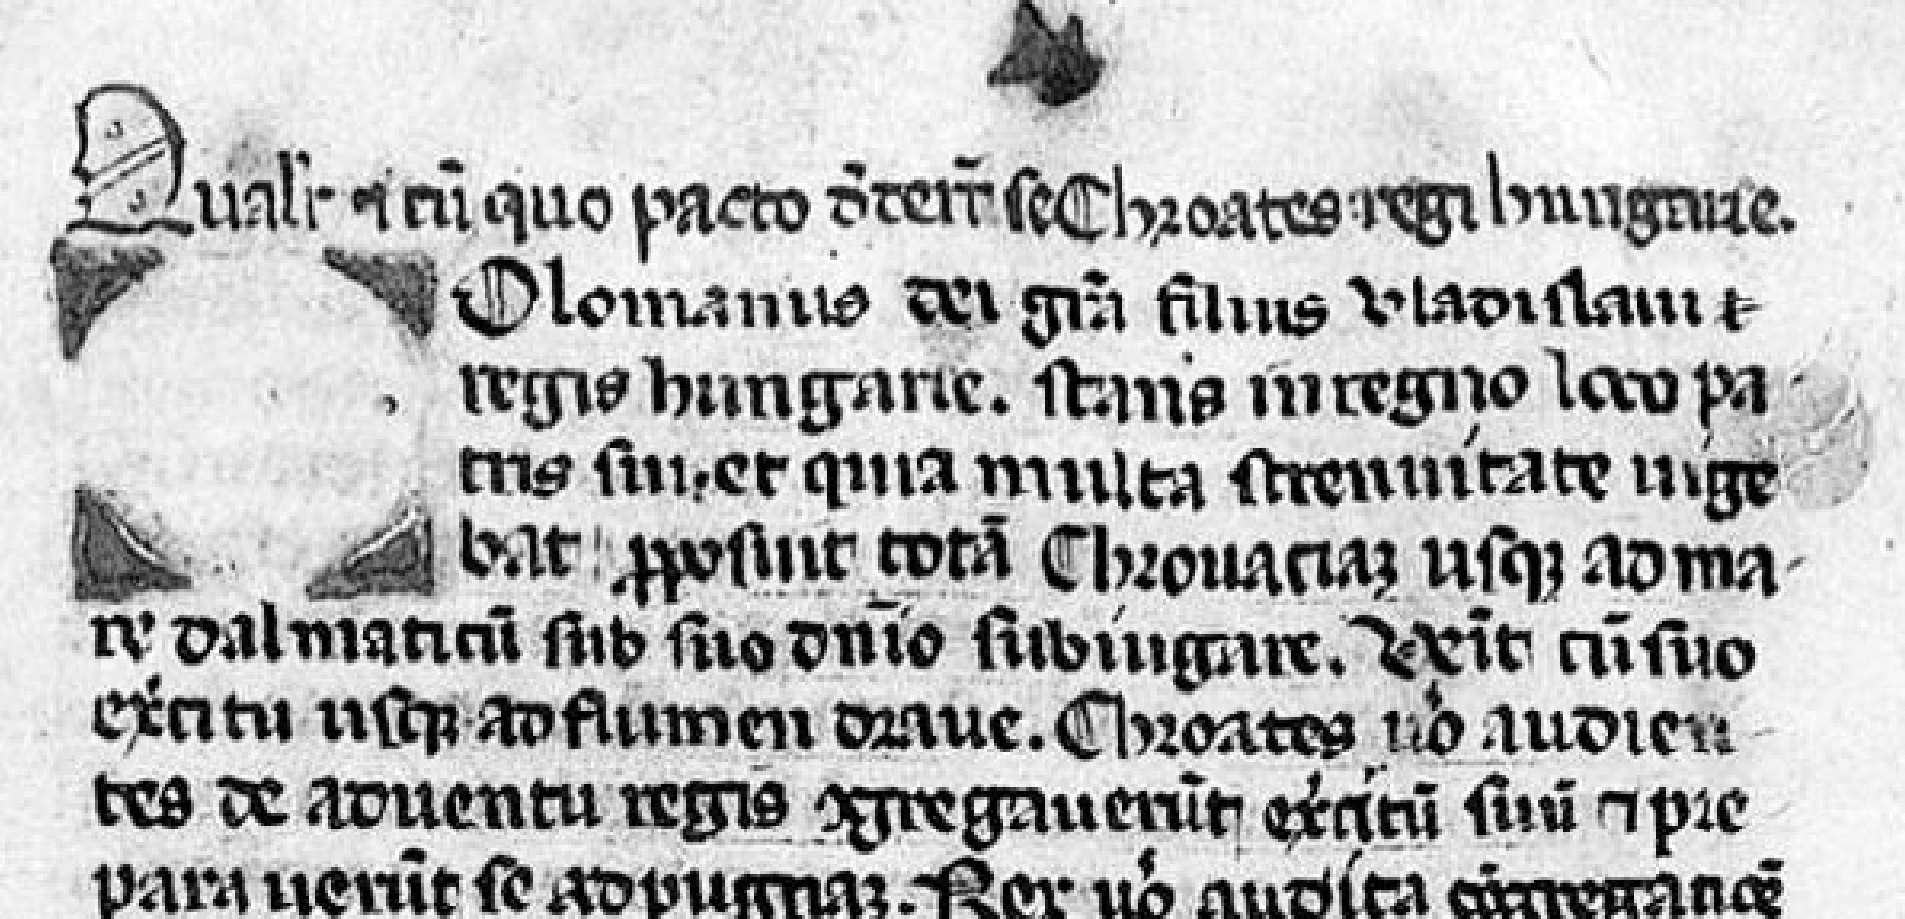 Qualr̄ et cū quo pacto d̄dert̄ se Chroates regi hungarie.
Olomanus dei grā filius vladislaui
regis hungarie. stans in regno loco pa
tris sui. et quia multa strenuitate uige
bat p̄posuit totā Chrouaciaꝫ usqꝫ ad ma
re dalmaticū sub suo dn̄io subiugare. Ueīt cū suo
ex̄citu usqꝫ ad flumen draue. Chroates uͦo audien
tes de aduentu regis ꝯgregauerūt ex̄citū suū ⁊ pre
parauerūt se ad pugnaꝫ. Rex uͦo audita